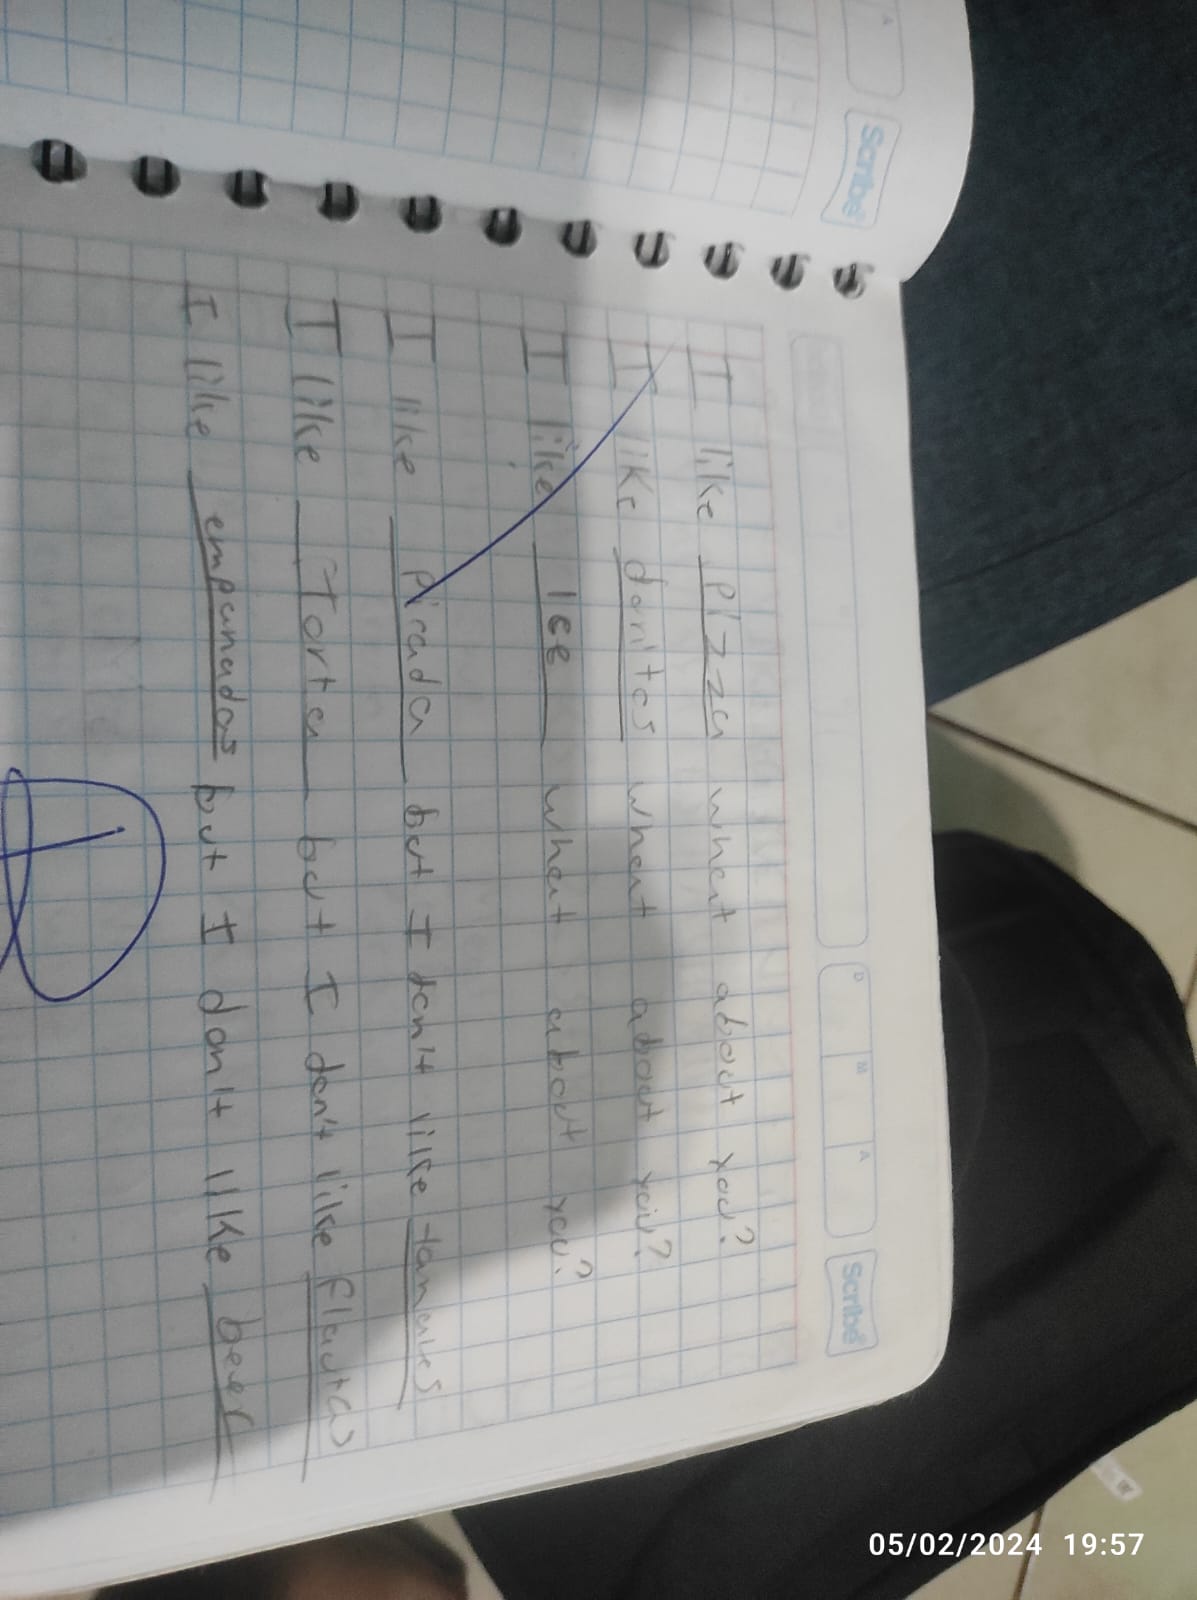 05/02/2024 19:57
A
Scribe
D M A
Scribe
I like Pizza what about you?
I like dorites what about you?
I like Ice what about you?
I like Picada but I don't like tamales
I like Torta but I don't like flautas
I like empanadas but I don't like beer